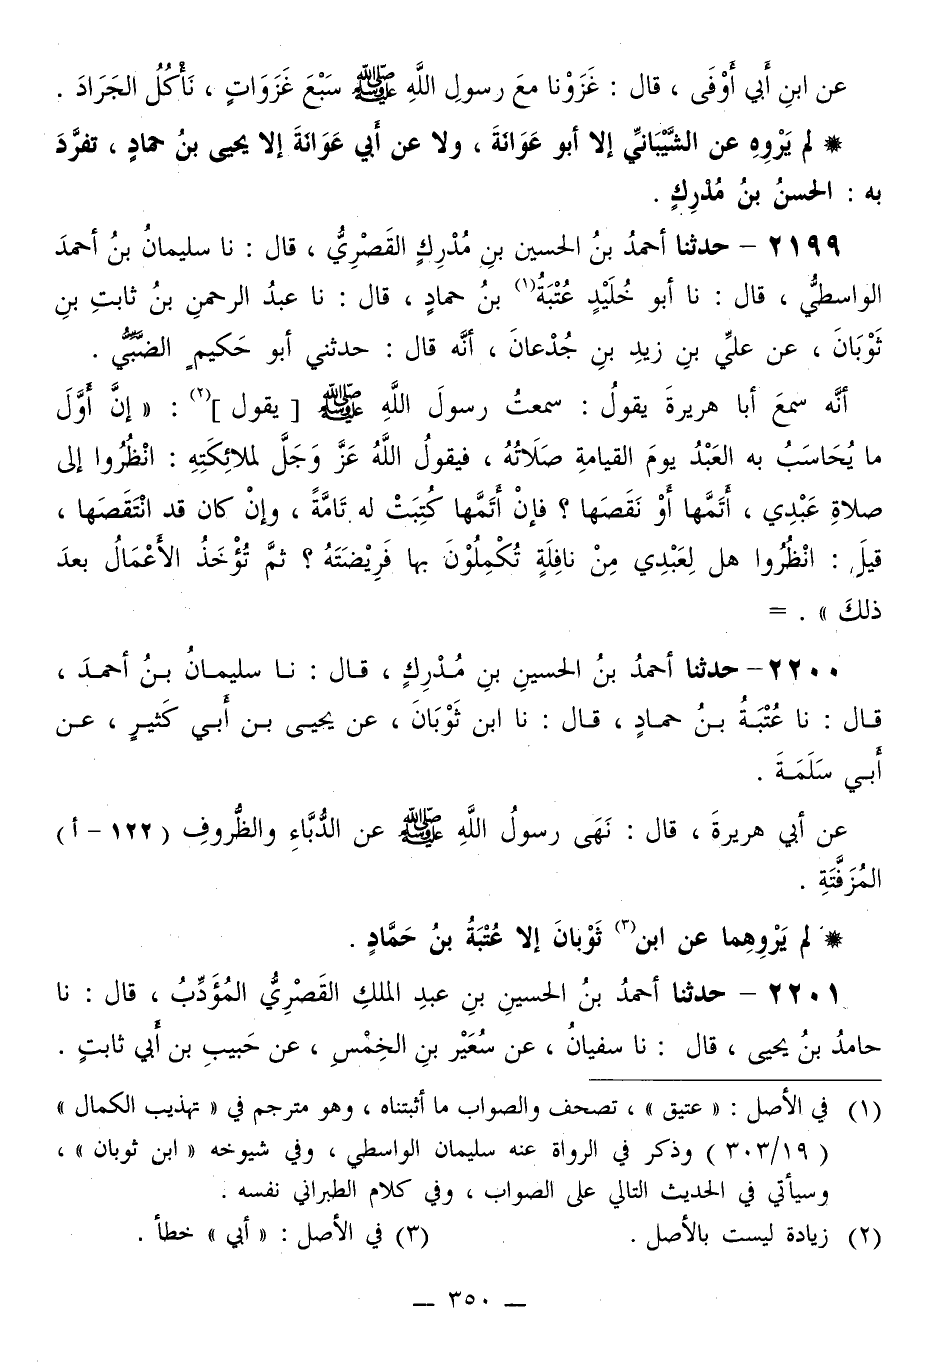 عن ابنِ أَبي أَوْفَى ، قال : غَزَوْنا معَ رسولِ اللَّهِ ﷺ سَبْعَ غَزَوَاتٍ ، نَأْكُلُ الجَرَادَ .
* لم يَرْوِهِ عن الشَّيْبَانيِّ إلا أبو عَوَانَةَ ، ولا عن أَبي عَوَانَةَ إلا يحيى بنُ حمادٍ ، تفرَّدَ
به : الحسنُ بنُ مُدْرِكٍ .
٢١٩٩ – حدثنا أحمدُ بنُ الحسين بنِ مُدْرِكٍ القَصْرِيُّ ، قال : نا سليمانُ بنُ أحمدَ
الواسطيُّ ، قال : نا أبو خُلَيْدٍ عُتْبَةُ(١) بنُ حمادٍ ، قال : نا عبدُ الرحمنِ بنُ ثابتِ بنِ
ثَوْبَانَ ، عن عليِّ بنِ زيدِ بنِ جُدْعانَ ، أنَّه قال : حدثني أبو حَكيمٍ الضَّبِّيُّ .
أنَّه سمعَ أبا هريرةَ يقولُ : سمعتُ رسولَ اللَّهِ ﷺ [ يقول ](٢) : « إنَّ أَوَّلَ
ما يُحَاسَبُ به العَبْدُ يومَ القيامةِ صَلَاتُهُ ، فيقولُ اللَّهُ عَزَّ وَجَلَّ لملائِكَتِهِ : انْظُرُوا إلى
صلاةِ عَبْدِي ، أَتَمَّها أَوْ نَقَصَها ؟ فإنْ أَتَمَّها كُتِبَتْ له تَامَّةً ، وإنْ كان قد انْتَقَصَها ،
قيلَ : انْظُرُوا هل لِعَبْدِي مِنْ نافِلَةٍ تُكْمِلُوْنَ بها فَرِيْضَتَهُ ؟ ثمَّ تُؤْخَذُ الأَعْمَالُ بعدَ
ذلكَ » . =
٢٢٠٠ – حدثنا أحمدُ بنُ الحسينِ بنِ مُدْرِكٍ ، قال : نا سليمانُ بنُ أحمدَ ،
قال : نا عُتْبَةُ بنُ حمادٍ ، قال : نا ابن ثَوْبَانَ ، عن يحيى بن أَبي كَثيرٍ ، عن
أَبي سَلَمَةَ .
عن أبي هريرةَ ، قال : نَهَى رسولُ اللَّهِ ﷺ عن الدُّبَّاءِ والظُّروفِ ( ١٢٢ – أ )
المُزَفَّتَةِ .
* لم يَرْوِهِما عن ابن(٣) ثَوْبانَ إلا عُتْبَةُ بنُ حَمَّادٍ .
٢٢٠١ – حدثنا أحمدُ بنُ الحسينِ بنِ عبدِ الملكِ القَصْرِيُّ المُؤَدِّبُ ، قال : نا
حامدُ بنُ يحيى ، قال : نا سفيانُ ، عن سُعَيْر بنِ الخِمْسِ ، عن حَبيبِ بن أَبي ثابتٍ .
(١) في الأصل : « عتيق » ، تصحف والصواب ما أثبتناه ، وهو مترجم في « تهذيب الكمال »
( ٣٠٣/١٩ ) وذكر في الرواة عنه سليمان الواسطي ، وفي شيوخه « ابن ثوبان » ،
وسيأتي في الحديث التالي على الصواب ، وفي كلام الطبراني نفسه .
(٢) زيادة ليست بالأصل . (٣) في الأصل : « أبي » خطأ .
— ٣٥٠ —